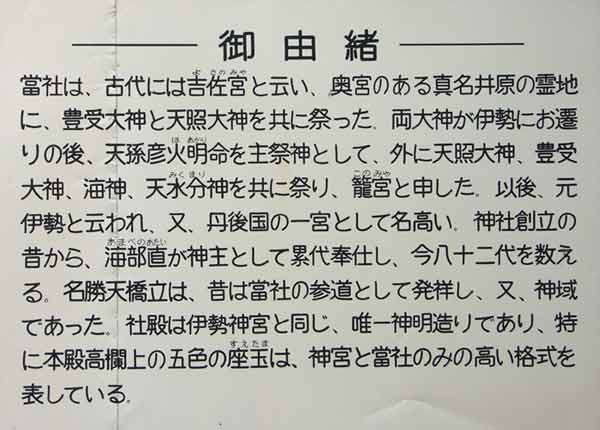 御由緒
當社は、古代には吉佐宮と云い、奥宮のある真名井原の霊地
に、豊受大神と天照大神を共に祭った。両大神が伊勢にお遷
りの後、天孫彦火明命を主祭神として、外に天照大神、豊受
大神、海神、天水分神を共に祭り、籠宮と申した。以後、元
伊勢と云われ、又、丹後国の一宮として名高い。神社創立の
昔から、海部直が神主として累代奉仕し、今八十二代を数え
る。名勝天橋立は、昔は當社の参道として発祥し、又、神域
であった。社殿は伊勢神宮と同じ、唯一神明造りであり、特
に本殿高欄上の五色の座玉は、神宮と當社のみの高い格式を
表している。